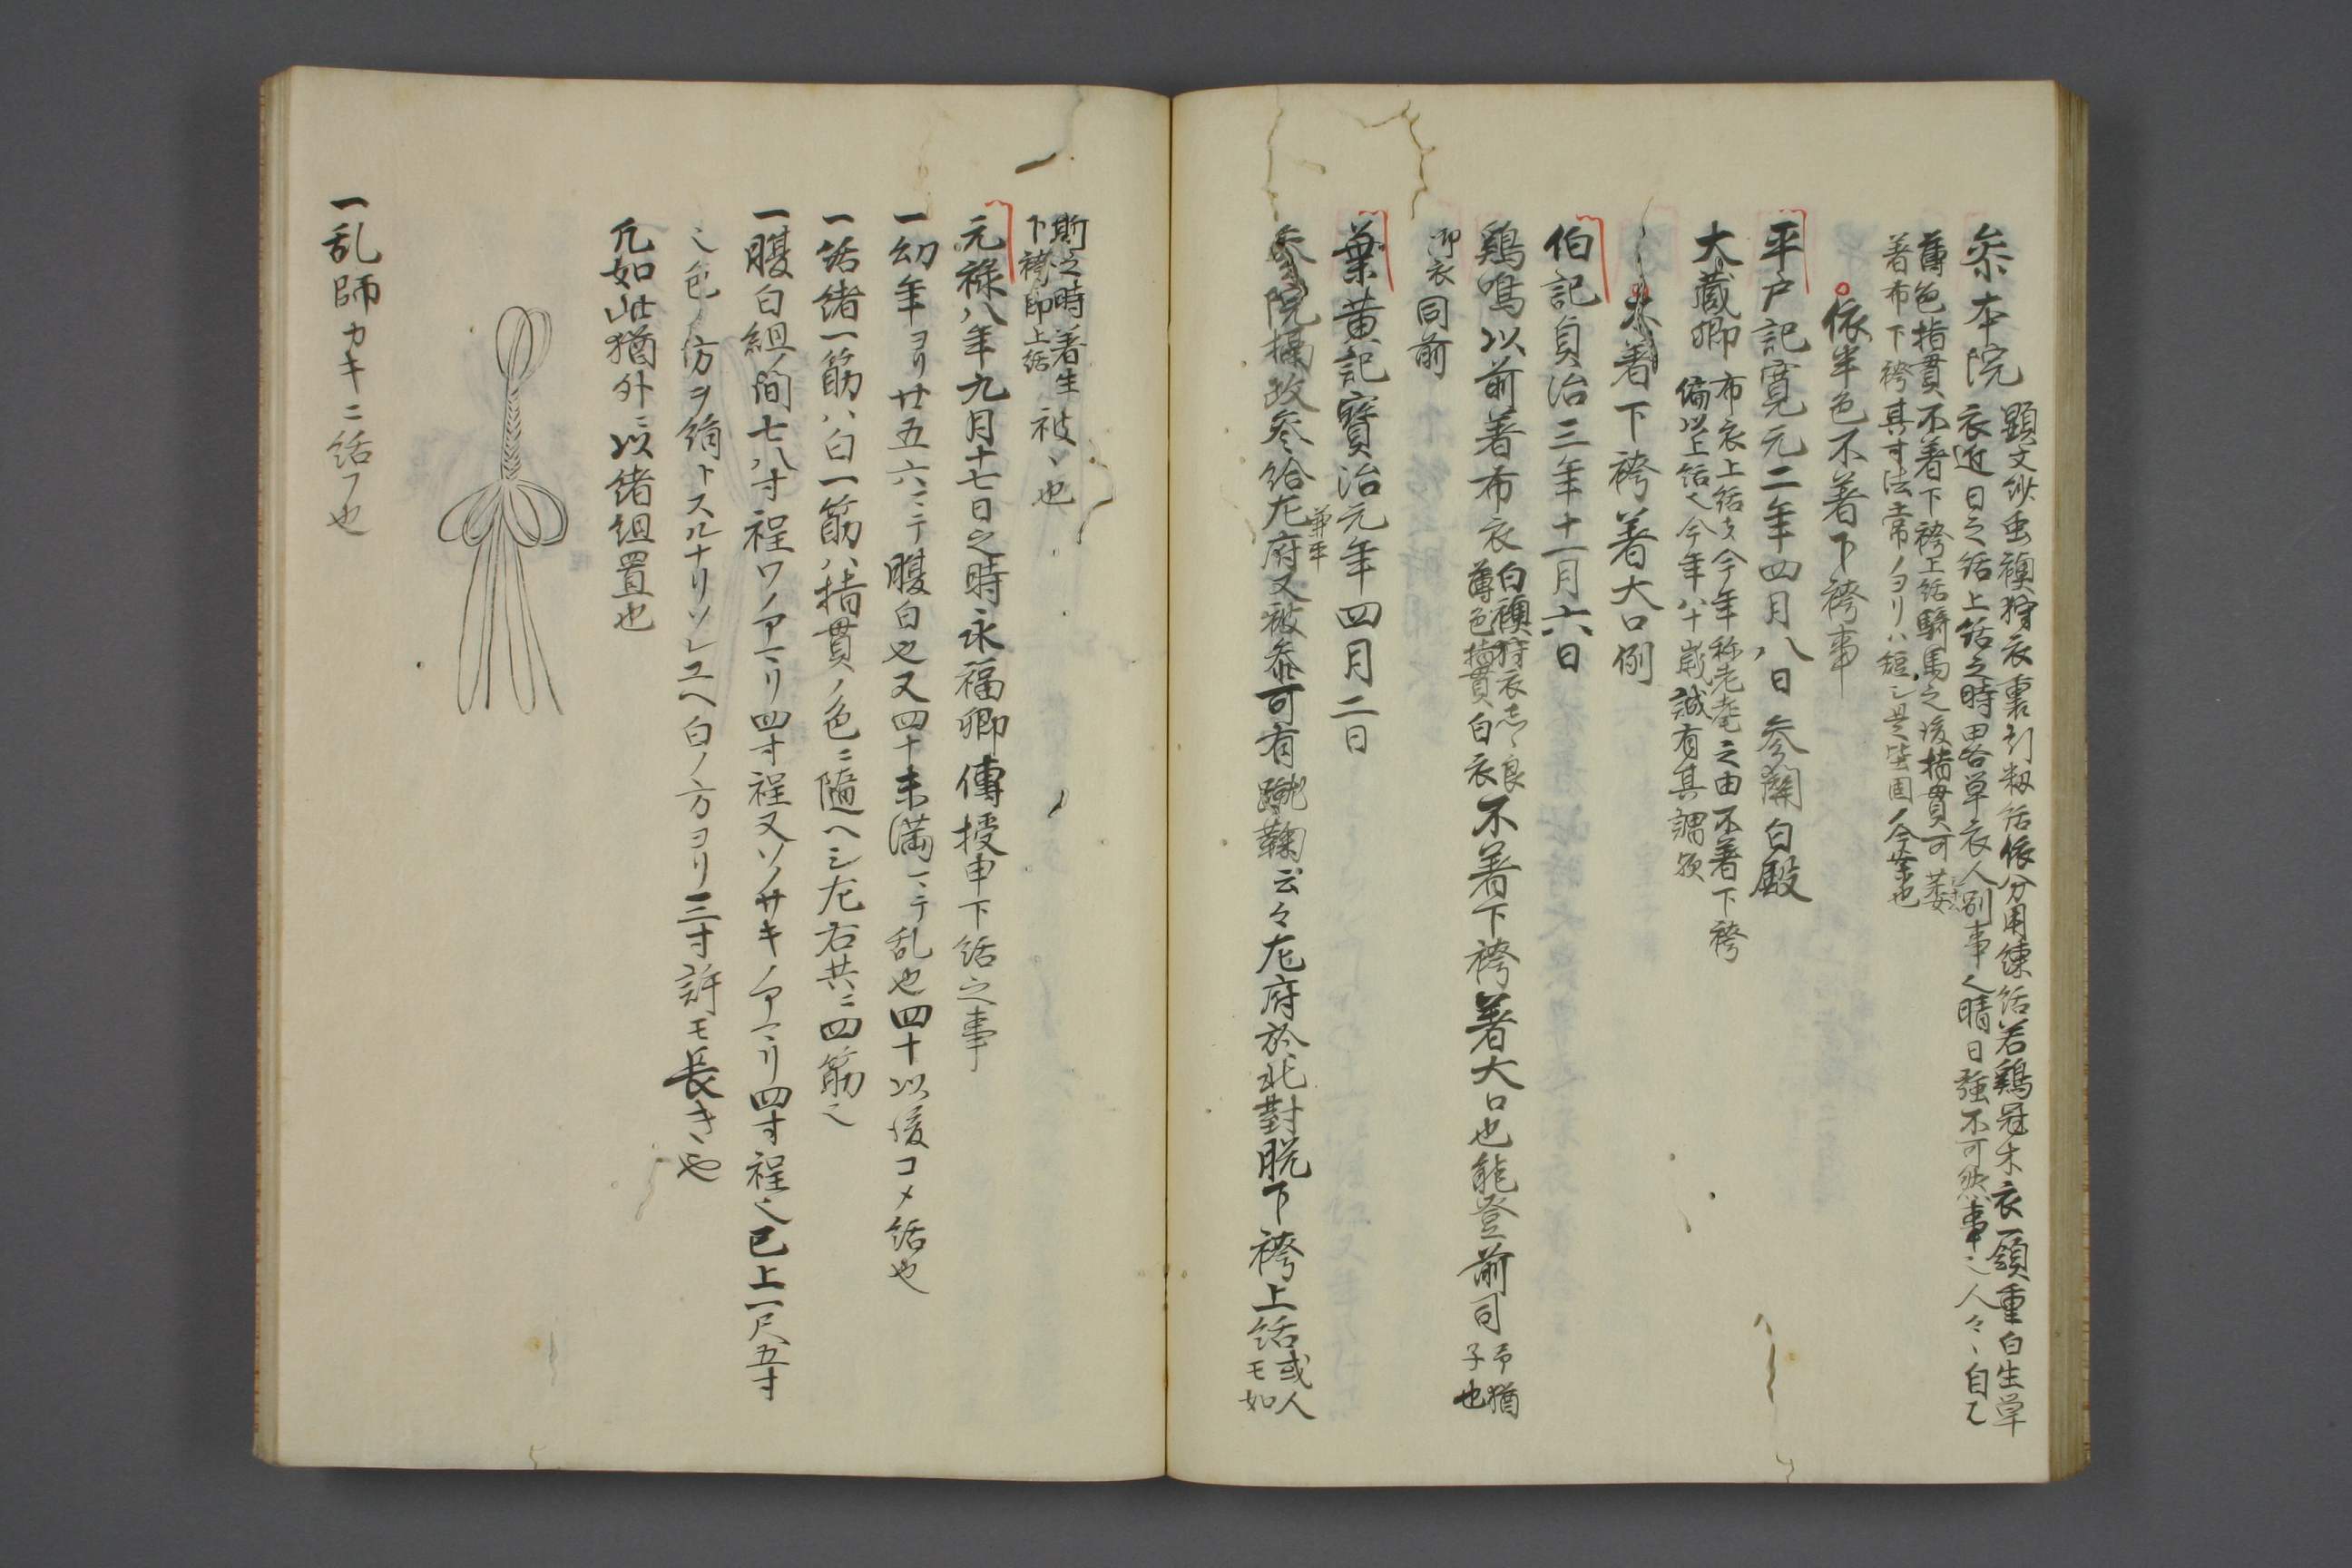 参本院
顕文紗虫襖狩衣裏引籾括依分用練括若鶏冠木衣一領重白生単
衣近日之括上括之時田各単衣人別事也晴日強不可然事之人々、自又
薄色指貫不着下袴上括騎馬之後指貫可
着布下袴其寸法常ノヨリハ短シ是皆固ノ今案也
依半色不著下袴事
平戸記寛元二年四月八日参関白殿
大蔵卿
布衣上括支今年称老耄之由不著下袴
偏以上括也今年八十歳誠有其謂歟
不著下袴著大口例
伯記貞治三年十一月六日
鶏鳴以前著布衣
白襖狩衣志々良
薄色指貫白衣
不著下袴著大口也能登前司
予猶
子也
御衣同前
葉黄記宝治元年四月二日
参院摂政参給左府
兼平
又被参可有蹴鞠云々左府於北対脱下袴上括
或人
モ如
斯之時著生
下袴即上括
被、也
元禄八年九月十七日之時永福卿傳授申下括之事
一幼年ヨリ廿五六ニテ腹白也又四十未満ニテ乱也四十以後コメ括也
一括緒一筋ハ白一筋ハ指貫ノ色ニ随ヘシ左右共ニ四筋也
一腹白組ノ間七八寸程ワノアマリ四寸程又ソノサキノアマリ四寸程也已上一尺五寸
也色ノ方ヲ絹トスルナリソレユヘ白ノ方ヨリ三寸許モ長キ也
凡如此猶外ニ以緒組置也
一乱師カキニ括フ也